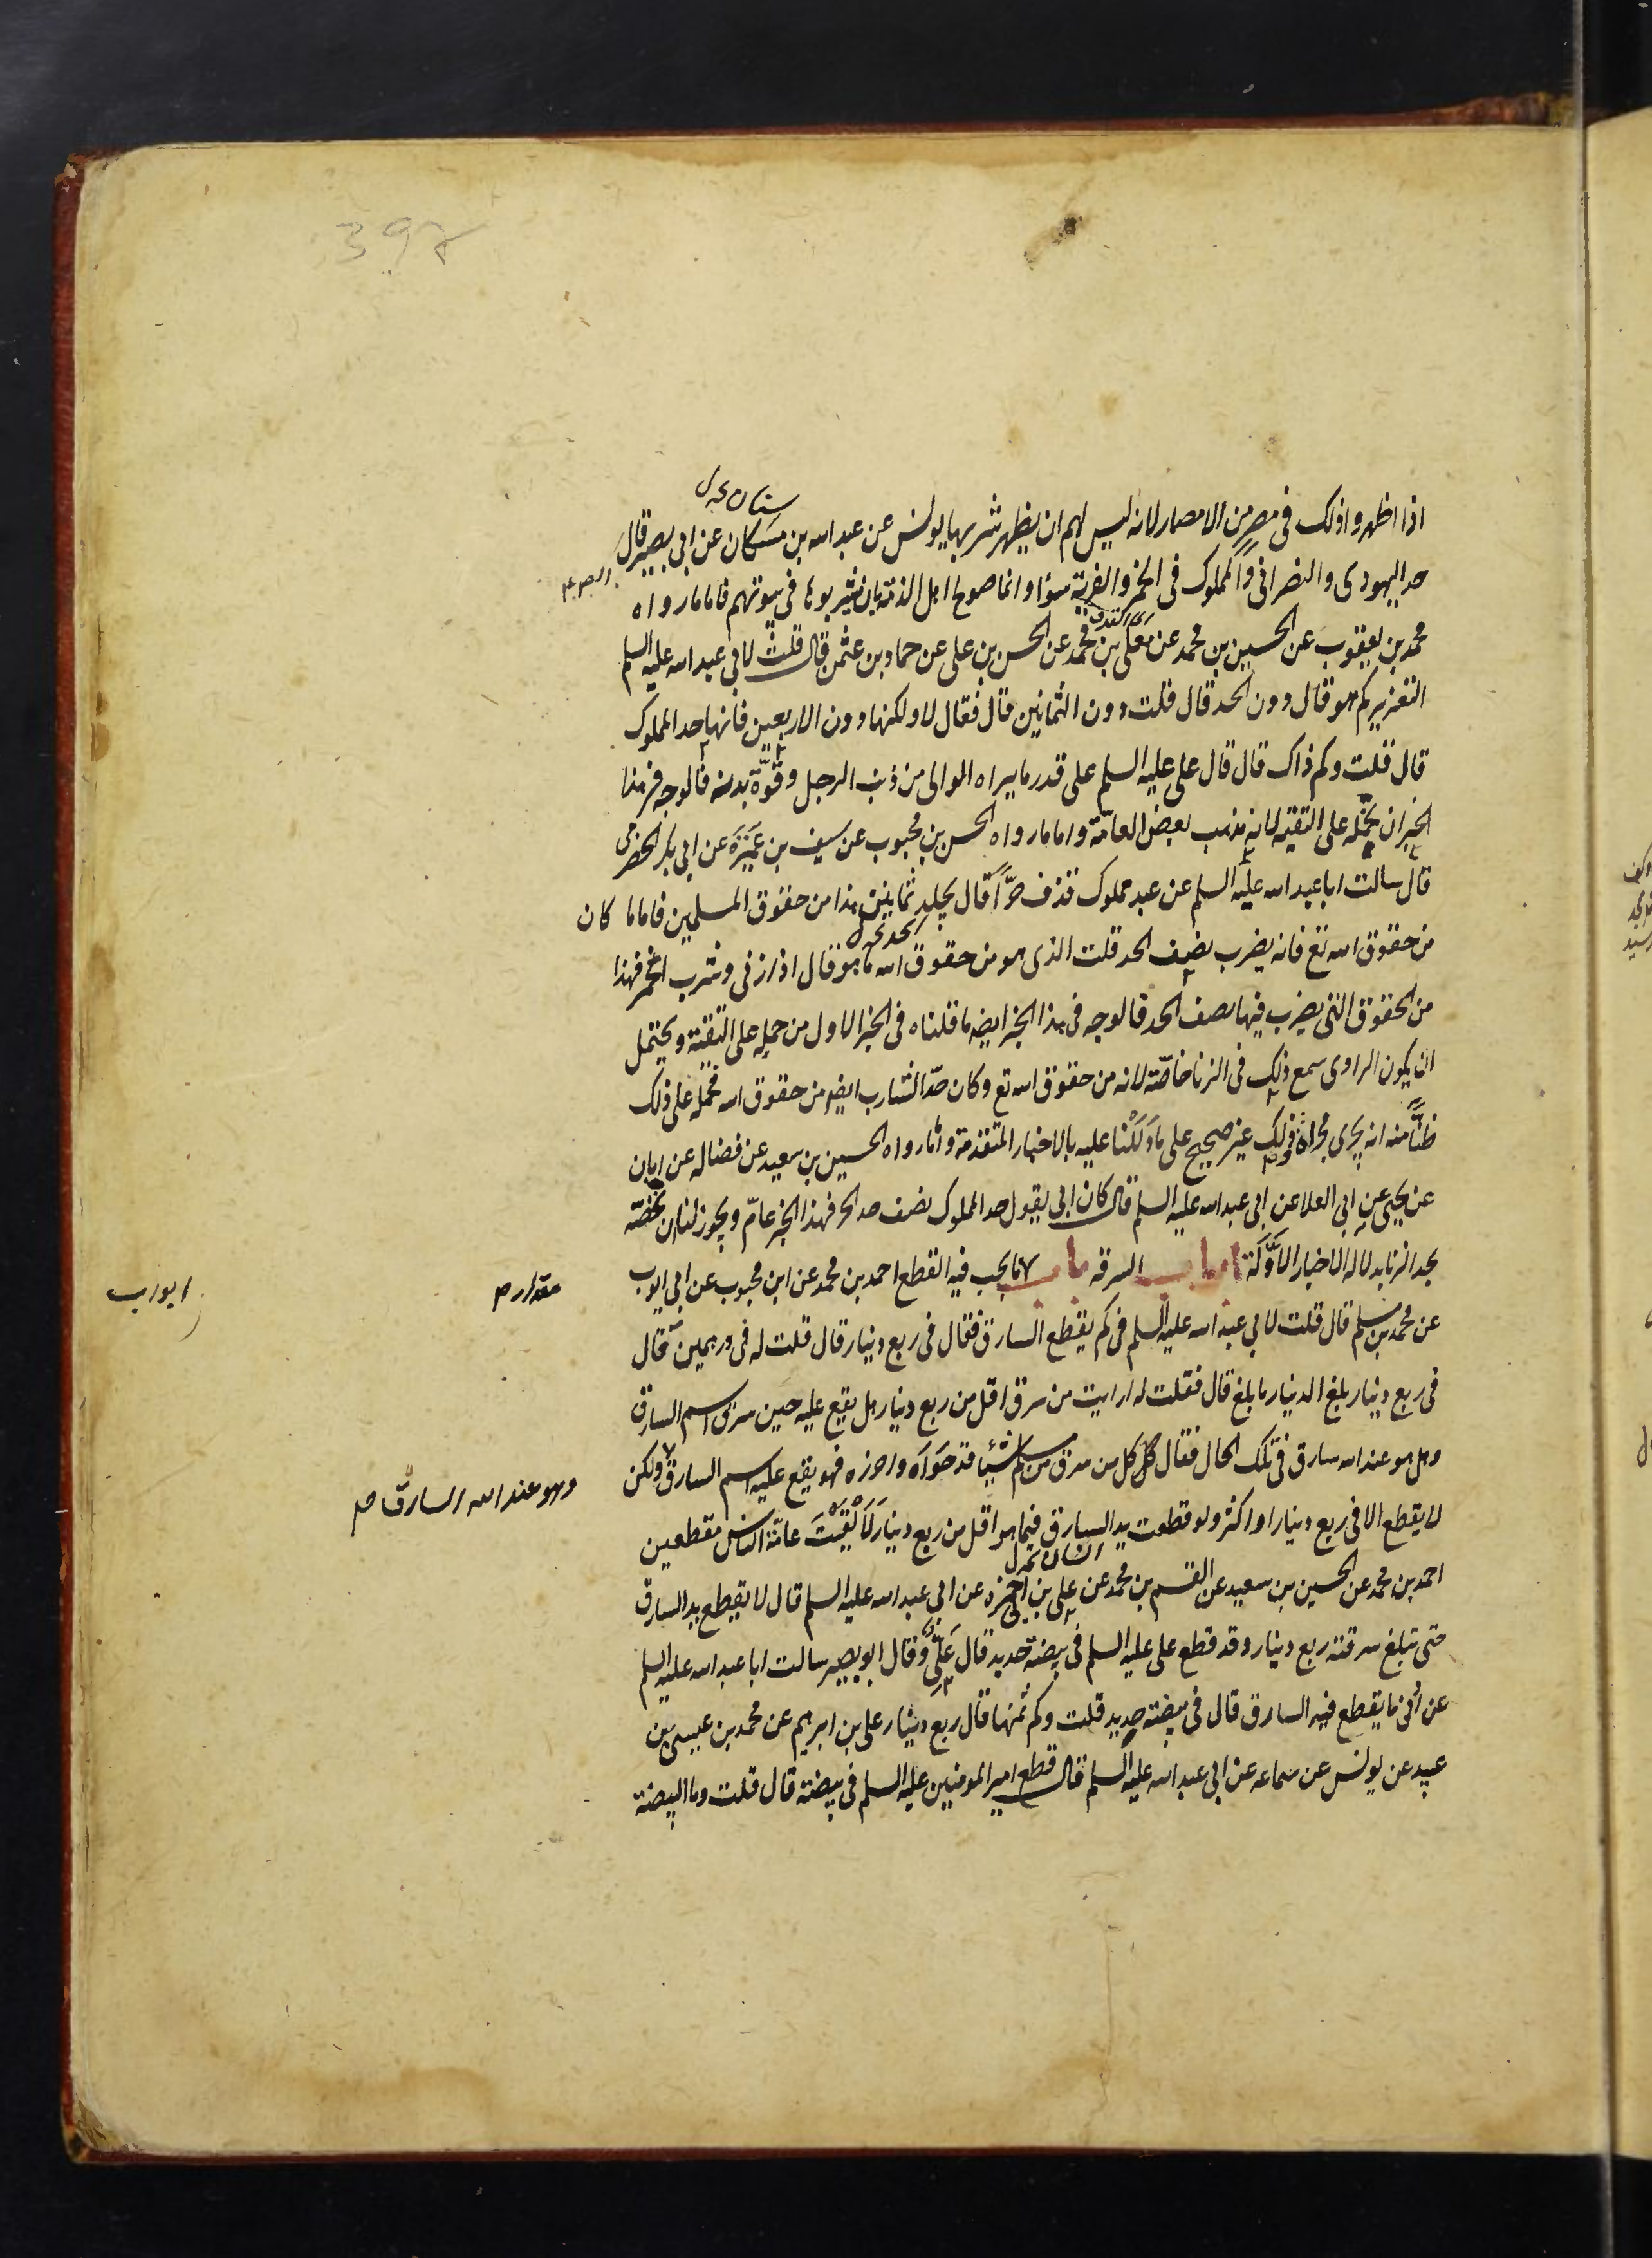 397
سنان خ ل
اذا اظهروا ذلك فى مصر من الامصار لانه ليس لهم ان يظهر شربها يونس عن عبد الله بن مسكان عن ابى بصير قال
حد اليهودى والنصرانى والمملوك فى الخمر والفرية سواء وانما صولح اهل الذمة بان يشربوها فى بيوتهم فاما ما رواه
محمد بن يعقوب عن الحسين بن محمد عن معلى بن محمد عن الحسن بن على عن حماد بن عثمن قال قلت لابى عبد الله عليه السلم
التعزير كم هو قال دون الحد قال قلت دون الثمانين قال فقال لا ولكنها دون الاربعين فانها حد المملوك
قال قلت وكم ذاك قال قال على عليه السلم على قدر ما يراه الوالى من ذنب الرجل وقوّة بدنه فالوجه فى هذا
الخبر ان نحمله على التقية لانه مذهب بعض العامّة واما ما رواه الحسن بن محبوب عن سيف بن عميرة عن ابى بكر الحضرمى
قال سالت ابا عبد الله عليه السلم عن عبد مملوك قذف حرّاً قال يجلد ثمانين هذا من حقوق المسلمين فاما ما كان
من حقوق الله تع فانه يضرب نصف الحد قلت الذى هو من حقوق الله ما هو قال اذا زنى وشرب الخمر فهذا
من الحقوق التى يضرب فيها نصف الحد فالوجه فى هذا الخبر ايضه ما قلناه فى الخبر الاول من حمله على التقية ويحتمل
ان يكون الراوى سمع ذلك فى الزنا خاصّة لانه من حقوق الله تع وكان حدّ الشارب ايضه من حقوق الله فحمله على ذلك
ظنّاً منه انه يجرى مجراه وذلك غير صحيح على ما دَلَلْنا عليه بالاخبار المتقدمة وما رواه الحسين بن سعيد عن فضاله عن ابان
عن يحيى عن ابى العلا عن ابى عبد الله عليه السلم قال كان ابى يقول حد المملوك نصف حد الحر فهذا الخبر عامّ ويجوز لنا ان نخصّه
بحد الزنا بدلاله الاخبار الاَوّلة ابواب السرقه باب ما يجب فيه القطع احمد بن محمد عن ابن محبوب عن ابى ايوب
مقدار م
ابواب
عن محمد بن مسلم قال قلت لابى عبد الله عليه السلم فى كم يقطع السارق فقال فى ربع دينار قال قلت له فى درهمين قال
فى ربع دينار بلغ الدينار ما بلغ قال فقلت له ارايت من سرق اقل من ربع دينار هل يقع عليه حين سرق اسم السارق
وهل هو عند الله سارق فى تلك الحال فقال كل من سرق من مسلم شيئا قد حواه واحرزه فهو يقع عليه اسم السارق ولكن
وهو عند الله السارق م
لا يقطع الا فى ربع دينار او اكثر ولو قطعت يد السارق فيما هو اقل من ربع دينار لَاَلْقَيْتَ عامّة الناس مقطعين
احمد بن محمد عن الحسين بن سعيد عن القسم بن محمد عن على بن ابى حمزه عن ابى عبد الله عليه السلم قال لا يقطع يد السارق
حتى تبلغ سرقته ربع دينار وقد قطع على عليه السلم فى بيضة حديد قال على وقال ابو بصير سالت ابا عبد الله عليه السلم
عن ادنى ما يقطع فيه السارق قال فى بيضة حديد قلت وكم ثمنها قال ربع دينار على بن ابرهيم عن محمد بن عيسى بن
عبيد عن يونس عن سماعه عن ابى عبد الله عليه السلم قال قطع امير المومنين عليه السلم فى بيضة قال قلت وما البيضة